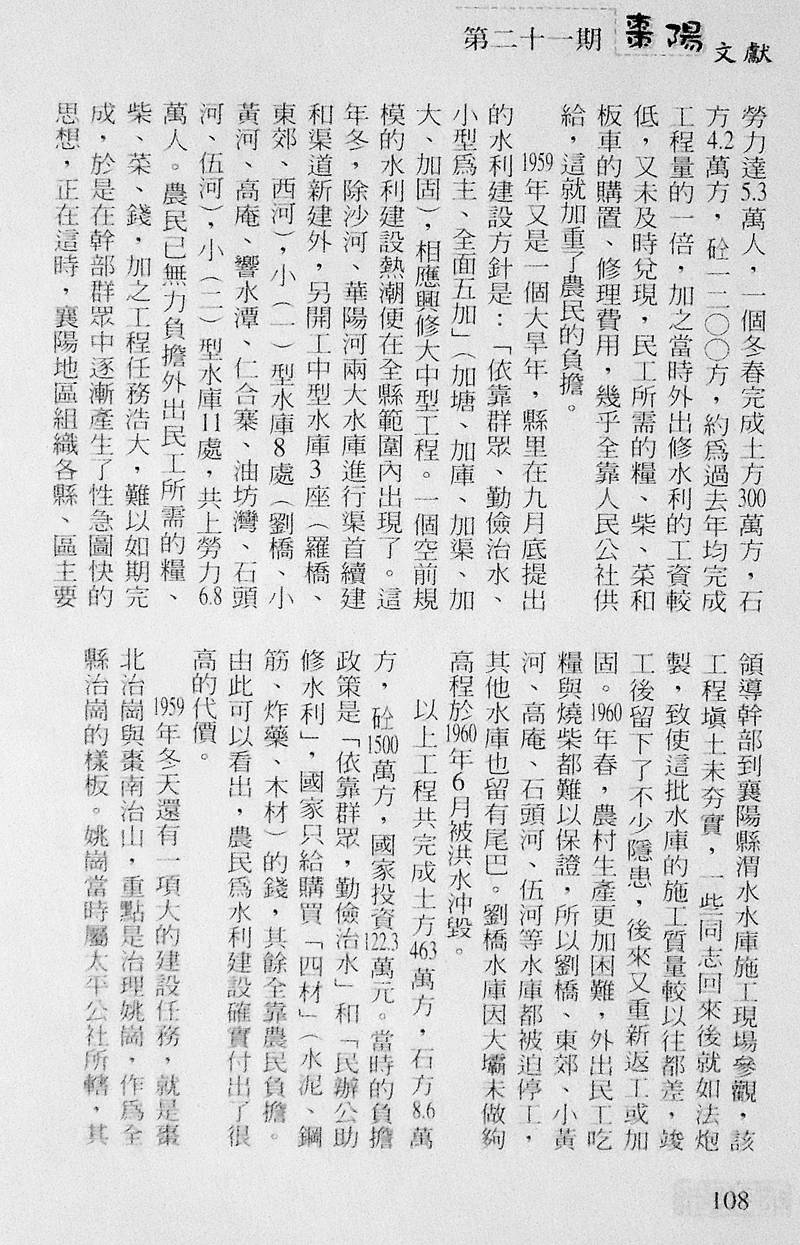 第二十一期 棗陽文獻
勞力達5.3萬人，一個冬春完成土方300萬方，石
方4.2萬方，砼一二〇〇方，約爲過去年均完成
工程量的一倍，加之當時外出修水利的工資較
低，又未及時兌現，民工所需的糧、柴、菜和
板車的購置、修理費用，幾乎全靠人民公社供
給，這就加重了農民的負擔。
1959年又是一個大旱年，縣里在九月底提出
的水利建設方針是：「依靠群眾、勤儉治水、
小型爲主、全面五加」（加塘、加庫、加渠、加
大、加固），相應興修大中型工程。一個空前規
模的水利建設熱潮便在全縣範圍內出現了。這
年冬，除沙河、華陽河兩大水庫進行渠首續建
和渠道新建外，另開工中型水庫3座（羅橋、
東郊、西河），小（一）型水庫8處（劉橋、小
黃河、高庵、響水潭、仁合寨、油坊灣、石頭
河、伍河），小（二）型水庫11處，共上勞力6.8
萬人。農民已無力負擔外出民工所需的糧、
柴、菜、錢，加之工程任務浩大，難以如期完
成，於是在幹部群眾中逐漸產生了性急圖快的
思想，正在這時，襄陽地區組織各縣、區主要
領導幹部到襄陽縣渭水水庫施工現場參觀，該
工程塡土未夯實，一些同志回來後就如法炮
製，致使這批水庫的施工質量較以往都差，竣
工後留下了不少隱患，後來又重新返工或加
固。1960年春，農村生產更加困難，外出民工吃
糧與燒柴都難以保證，所以劉橋、東郊、小黃
河、高庵、石頭河、伍河等水庫都被迫停工，
其他水庫也留有尾巴。劉橋水庫因大壩未做夠
高程於1960年6月被洪水沖毀。
以上工程共完成土方463萬方，石方8.6萬
方，砼1500萬方，國家投資122.3萬元。當時的負擔
政策是「依靠群眾，勤儉治水」和「民辦公助
修水利」，國家只給購買「四材」（水泥、鋼
筋、炸藥、木材）的錢，其餘全靠農民負擔。
由此可以看出，農民爲水利建設確實付出了很
高的代價。
1959年冬天還有一項大的建設任務，就是棗
北治崗與棗南治山，重點是治理姚崗，作爲全
縣治崗的樣板。姚崗當時屬太平公社所轄，其
108